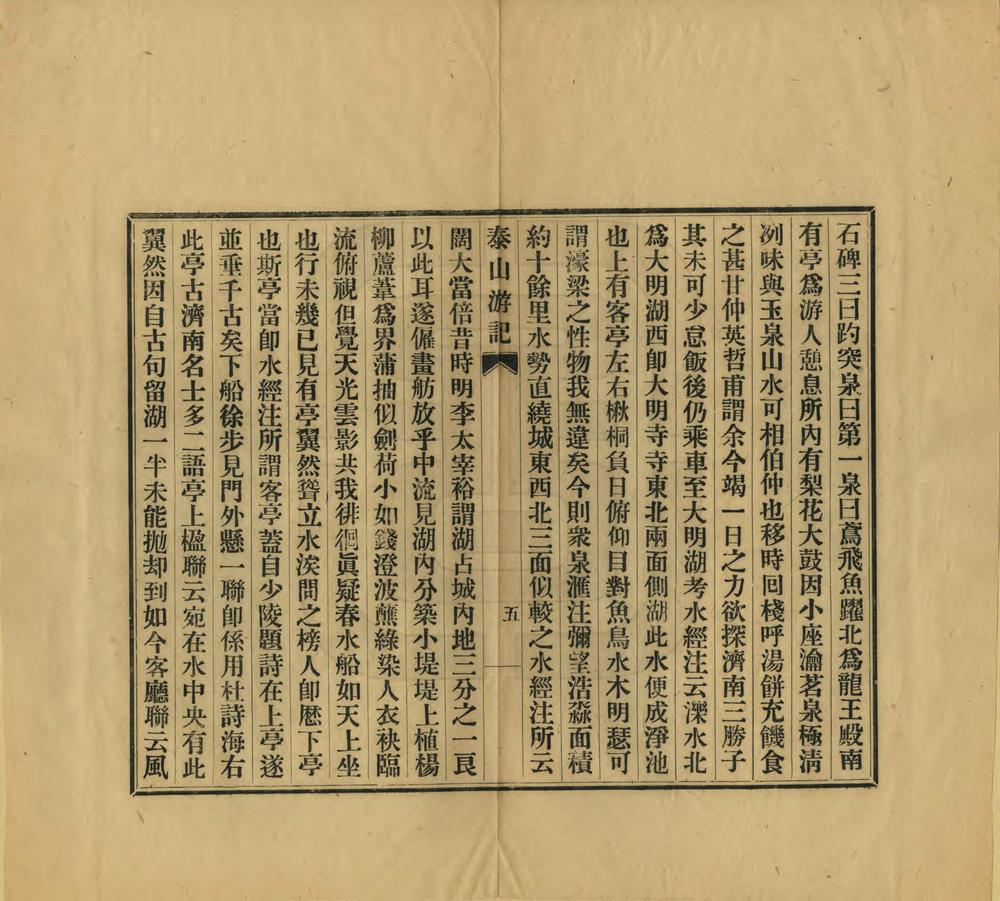 石碑三曰趵突泉曰第一泉曰鳶飛魚躍北爲龍王殿南
有亭爲游人憩息所內有梨花大鼓因小座瀹茗泉極淸
冽味與玉泉山水可相伯仲也移時回棧呼湯餅充饑食
之甚甘仲英哲甫謂余今竭一日之力欲探濟南三勝子
其未可少怠飯後仍乘車至大明湖考水經注云濼水北
爲大明湖西卽大明寺寺東北兩面側湖此水便成淨池
也上有客亭左右楸桐負日俯仰目對魚鳥水木明瑟可
謂濠梁之性物我無違矣今則衆泉滙注彌望浩淼面積
約十餘里水勢直繞城東西北三面似較之水經注所云
泰山游記
五
闊大當倍昔時明李太宰裕謂湖占城內地三分之一良
以此耳遂僱畫舫放乎中流見湖內分築小堤堤上植楊
柳蘆葦爲界蒲抽似劍荷小如錢澄波蘸綠染人衣袂臨
流俯視但覺天光雲影共我徘徊眞疑春水船如天上坐
也行未幾已見有亭翼然聳立水涘問之榜人卽歷下亭
也斯亭當卽水經注所謂客亭蓋自少陵題詩在上亭遂
並垂千古矣下船徐步見門外懸一聯卽係用杜詩海右
此亭古濟南名士多二語亭上楹聯云宛在水中央有此
翼然因自古句留湖一半未能抛却到如今客廳聯云風